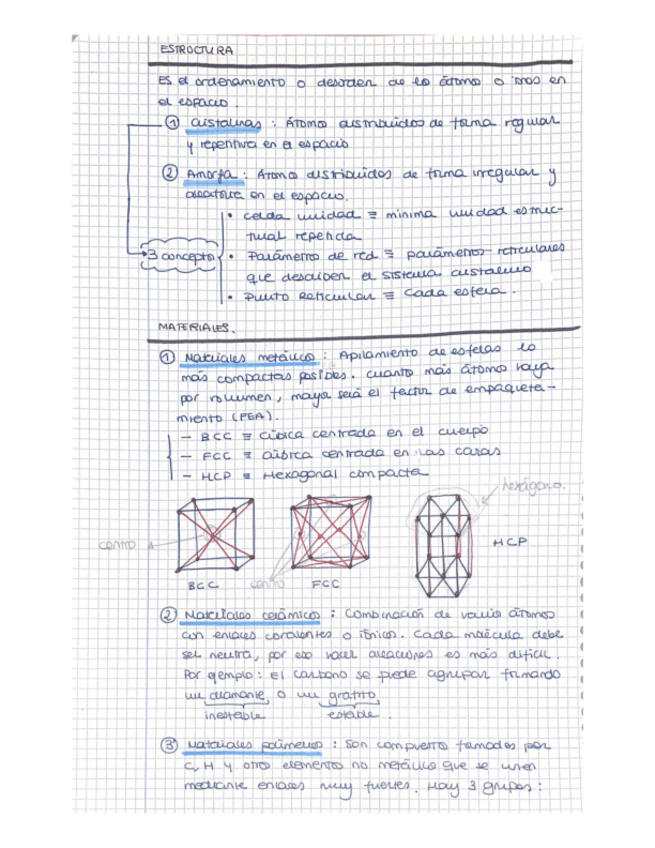 ESTRUCTURA
Es el ordenamiento o desorden de los átomos o iones en
el espacio.
① Cristalinas : Átomos distribuidos de forma regular
y repetitiva en el espacio
② Amorfa : Átomos distribuidos de forma irregular y
aleatoria en el espacio.
3 conceptos
• Celda unidad ≡ mínima unidad estruc-
tural repetida
• Parámetro de red ≡ parámetros reticulares
que describen el sistema cristalino
• Punto Reticular ≡ Cada esfera.
MATERIALES.
① Materiales metálicos : Apilamiento de esferas lo
más compactas posibles. Cuanto más átomos haya
por volumen, mayor será el factor de empaqueta-
miento (FEA).
- BCC ≡ Cúbica centrada en el cuerpo
- FCC ≡ cúbica centrada en las caras
- HCP ≡ Hexagonal compacta
hexágono.
centro
HCP
BCC
centro
FCC
② Materiales cerámicos : Combinación de varios átomos
con enlaces covalentes o iónicos. Cada molécula debe
ser neutra, por eso hacer aleaciones es más difícil.
Por ejemplo : El carbono se puede agrupar formando
un diamante o un grafito
inestable estable.
③ Materiales polímeros : Son compuestos formados por
C, H y otros elementos no metálicos que se unen
mediante enlaces muy fuertes. Hay 3 grupos :